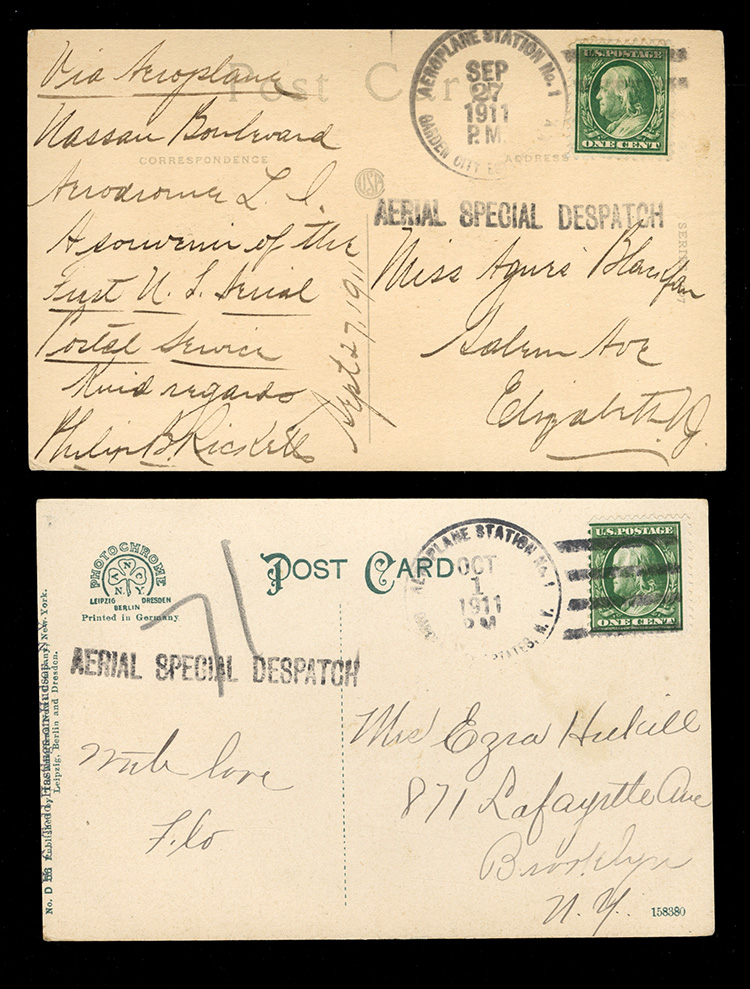 Via Aeroplane
Nassau Boulevard
Aerodrome L. I.
A souvenir of the
First U. S. Aerial
Postal Service
Kind regards
Philip B.
Sept 27, 1911
Post Car
CORRESPONDENCE
ADDRESS
USA
AEROPLANE STATION No. 1
SEP
27
1911
P.M.
GARDEN CITY ES
U.S. POSTAGE
ONE CENT
AERIAL SPECIAL DESPATCH
SERIES
Miss Agnes
Salem Ave
Elizabeth N.J.
PHOTOCHROME
N. Y.
LEIPZIG DRESDEN
BERLIN
Printed in Germany
POST CARD
AEROPLANE STATION No. 1
OCT
1
1911
PM
STATES, N. Y.
U.S. POSTAGE
ONE CENT
AERIAL SPECIAL DESPATCH
With love
Flo
Mrs Ezra
871 Lafayette Ave
Brooklyn
N. Y.
158380
New-York.
Leipzig, Berlin and Dresden.
No. D